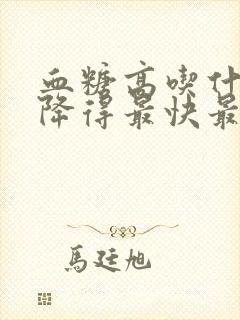 血糖高喫什
降得最快最
馬廷旭